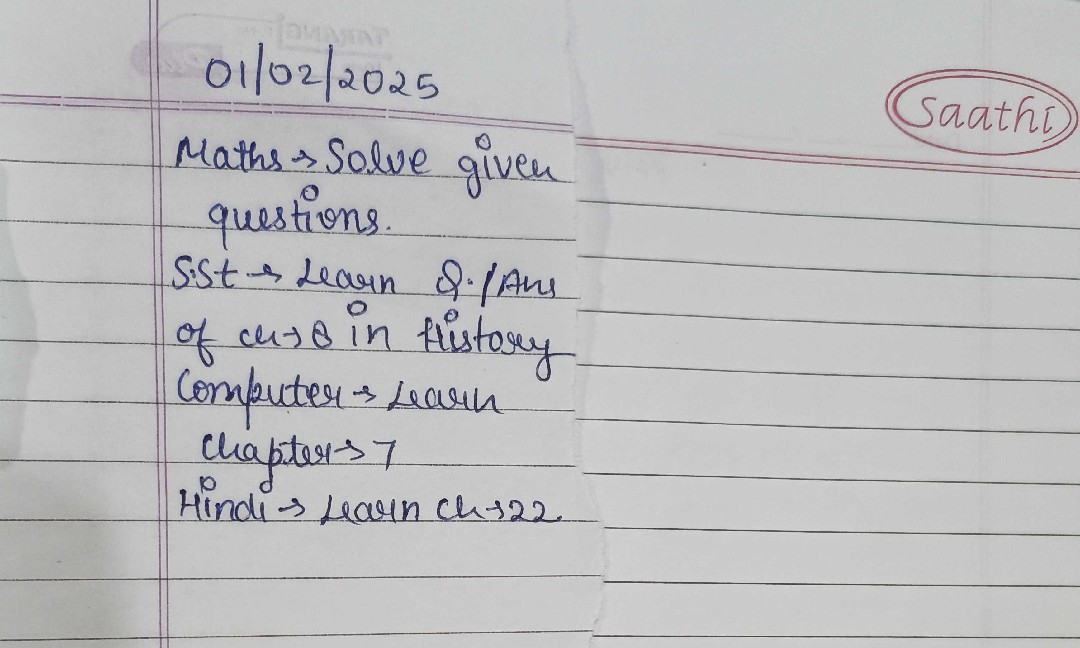 01/02/2025
Saathi
Maths → Solve given
questions.
S.St → Learn Q./Ans
of ch → 8 in History
Computer → Learn
Chapter → 7
Hindi → Learn Ch → 22.